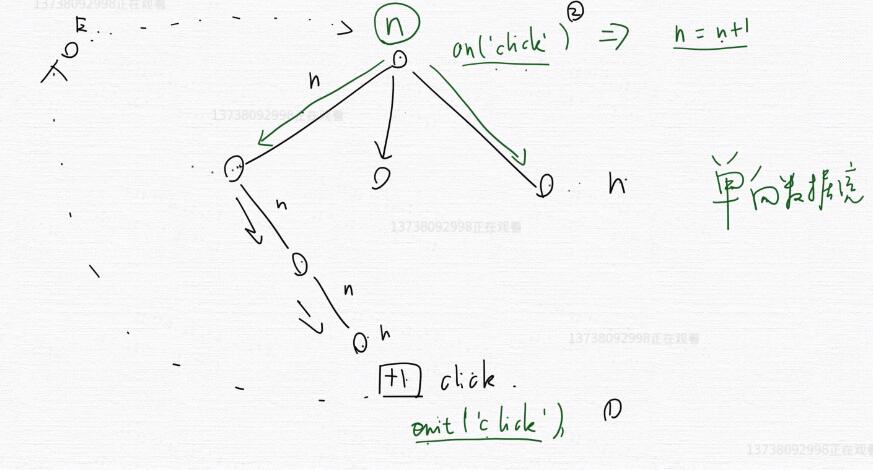 13738092998正在观看
E
n
on('click') ② => n = n+1
n
13738092998正在观看
n
单向数据流
n
13738092998正在观看
n
n
13738092998正在观看
+1 click.
emit('click'), ①
13738092998正在观看